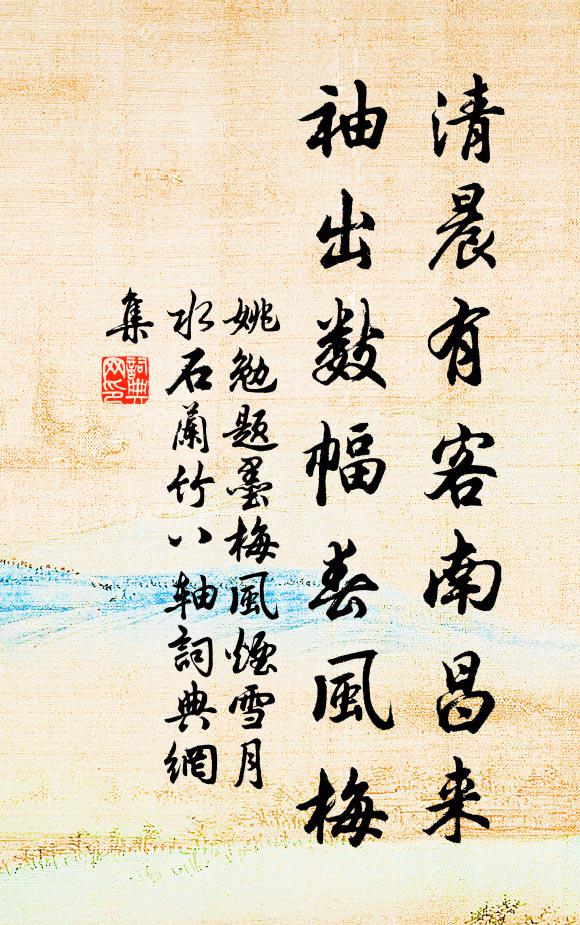 清晨有客南昌来
袖出数幅春风梅
姚勉题墨梅風煙雪月
水石蘭竹八轴詞典網
集
詞典
网印